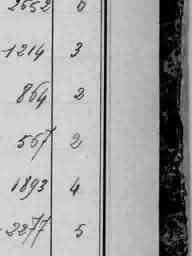 2652 0
1214 3
864 2
567 2
1893 4
2277 5